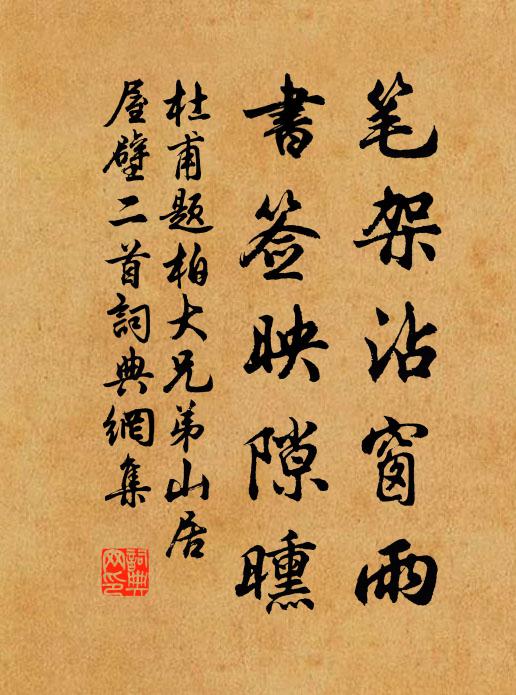 笔架沾窗雨
書签映隙曛
杜甫题柏大兄弟山居
屋壁二首詞典網集
詞典網印